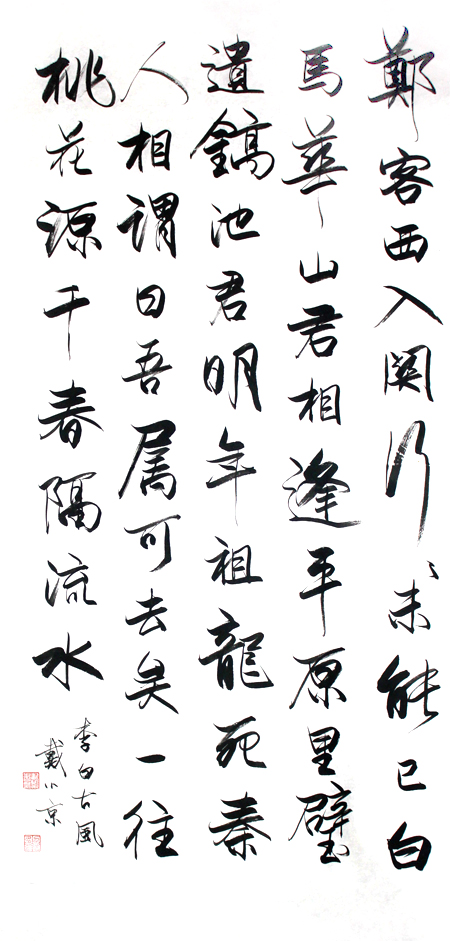 鄭客西入関行〻未能已白
馬華山君相逢平原里璧
遺鎬池君明年祖龍死秦
人相謂曰吾属可去矣一往
桃花源千春隔流水
李白古風
戴小京